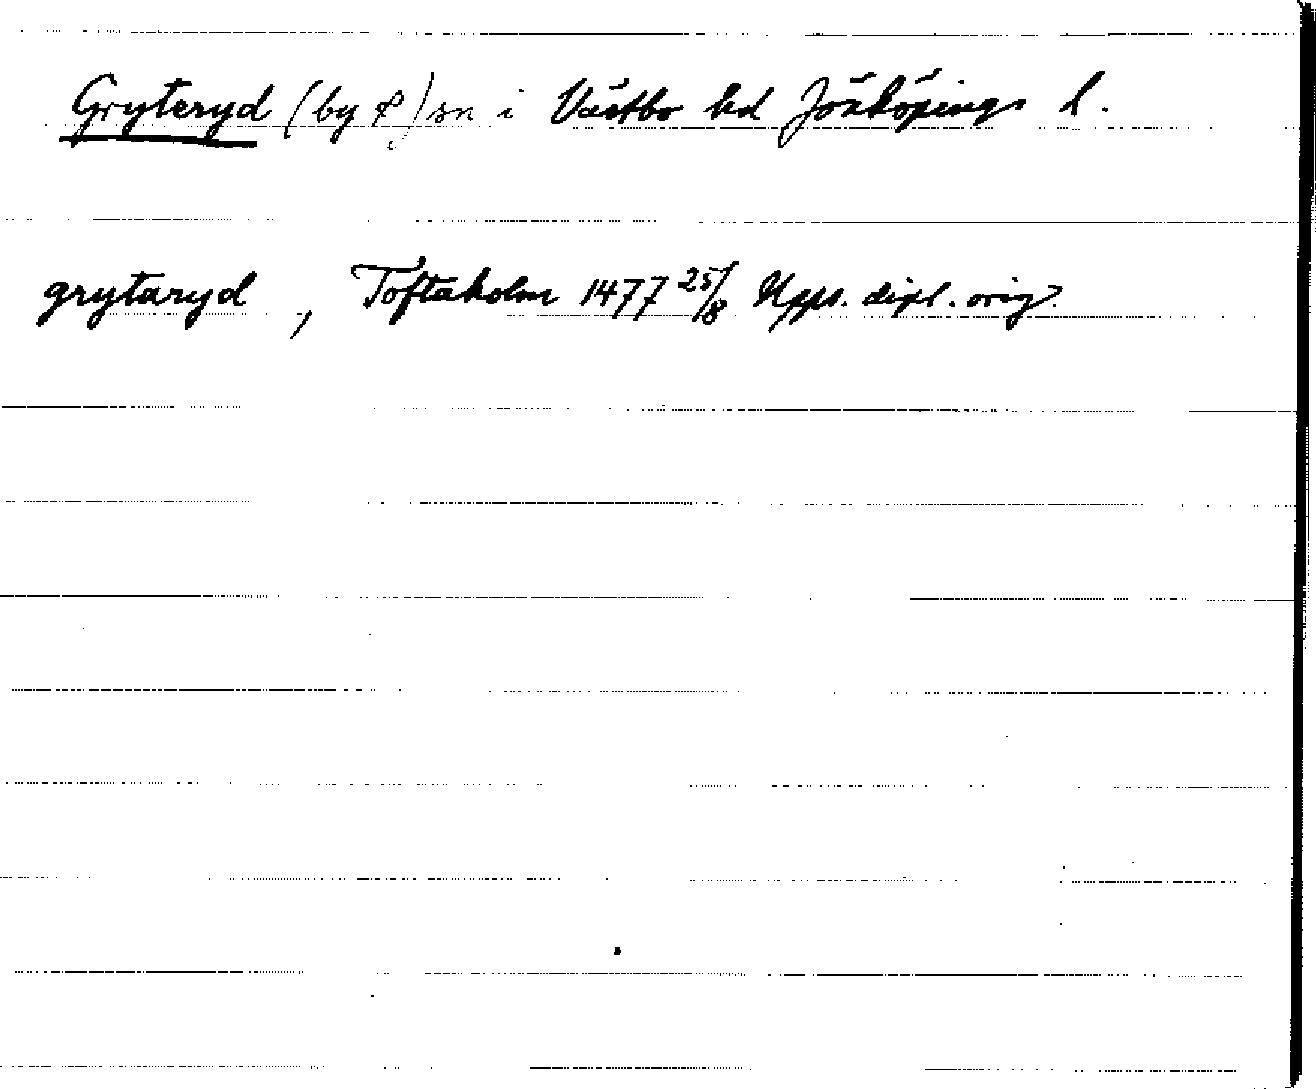 Gryteryd (by &) sn i Västbo hd Jönköpings l.
grytaryd , Toftaholm 1477 25/8 Upps. dipl. orig.